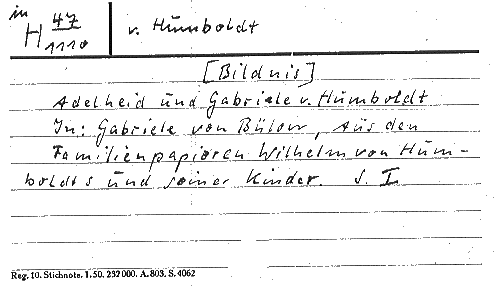 in
H 47/1110
v. Humboldt
[Bildnis]
Adelheid und Gabriele v. Humboldt
In: Gabriele von Bülow, Aus den
Familienpapieren Wilhelm von Hum-
boldts und seiner Kinder. S. I
Reg. 10. Stichnote. 1. 50. 232000. A. 803. S. 4062